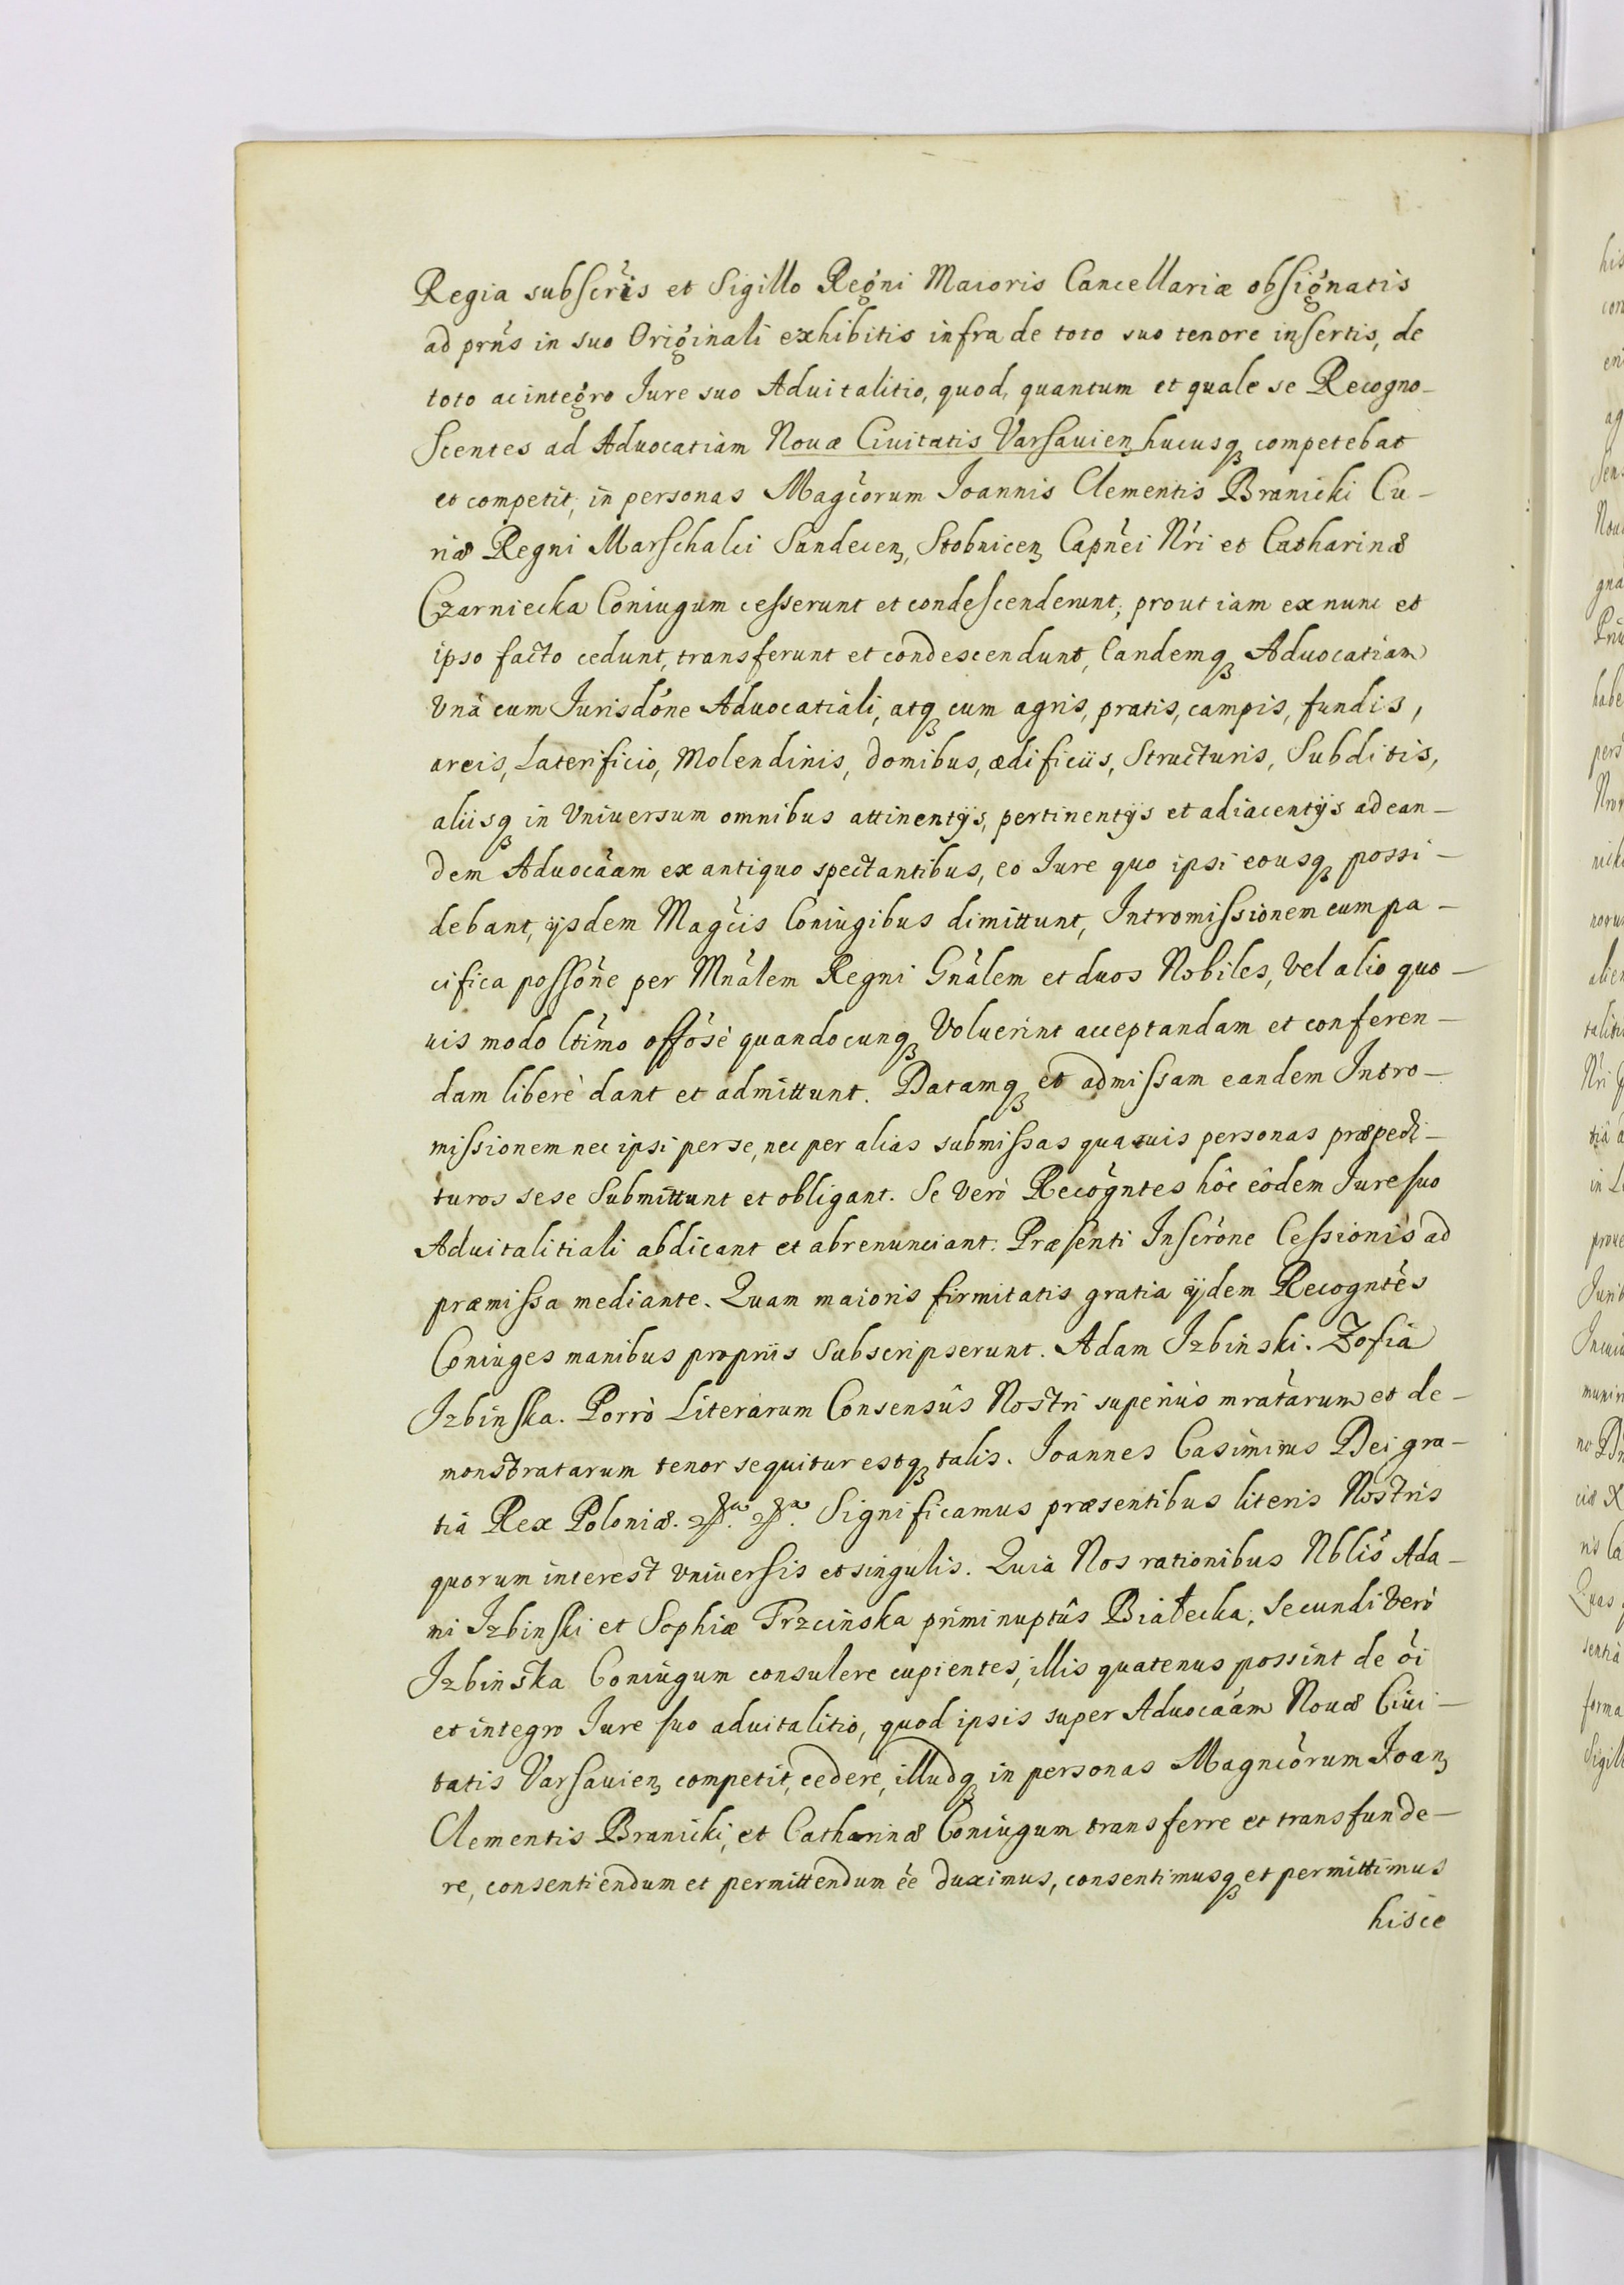 Regia subscris et Sigillo Regni Maioris Cancellariæ obsignatis
ad prns in suo Originali exhibitis infra de toto suo tenore insertis, de
toto ac integro Jure suo Aduitalitio, quod, quantum et quale se Recogno-
scentes ad Aduocatiam Nouæ Ciuitatis Varsauien hucusq competebat
et competit, in personas Magcorum Joannis Clementis Branicki Cu-
riæ Regni Marschalci Sandecen, Stobnicen Capnei Nri et Catharinæ
Czarniecka Coniugum cesserunt et condescenderunt, prout iam ex nunc et
ipso facto cedunt, transferunt et condescendunt, Eandemq Aduocatiam
Vnà cum Jurisdone Aduocatiali, atq cum agris, pratis, campis, fundis,
areis, Laterificio, Molendinis, domibus, ædificiis, Structuris, Subditis,
aliisq in Vniuersum omnibus attinentÿs, pertinentÿs et adiacentÿs ad ean-
dem Aduocàam ex antiquo spectantibus, eo Jure quo ipsi eousq possi-
debant, ÿsdem Magcis Coniugibus dimittunt, Intromissionem cum pa-
cifica possone per Mnalem Regni Gnalem et duos Nobiles, Vel alio quo-
uis modo ltimo offose quandocunq Voluerint acceptandam et conferen-
dam liberè dant et admittunt. Datamq et admissam eandem Intro-
missionem nec ipsi per se, nec per alias submissas quasuis personas præpedi-
turos sese Submittunt et obligant. Se Verò Recogntes hôc eôdem Jure suo
Aduitalitiali abdicant et abrenunciant. Præsenti Inscrone Cessionis ad
præmissa mediante. Quam maioris firmitatis gratia ÿdem Recogntes
Coniuges manibus propriis Subscripserunt. Adam Izbinski. Zofia
Izbinska. Porrò Literarum Consensûs Nostri superiùs mratarum et de-
monstratarum tenor sequitur estq talis. Joannes Casimirus Dei gra-
tià Rex Poloniæ. &a. &a. Significamus præsentibus literis Nostris
quorum interest vniuersis et singulis. Quià Nos rationibus Nblis Ada-
mi Izbinski et Sophiæ Trzcinska primi nuptûs Białecka, Secundi Verò
Izbinska Coniugum consulere cupientes, illis quatenus possint de oi
et integro Jure suo aduitalitio, quod ipsis super Aduocàam Nouæ Ciui-
tatis Varsauien competit, cedere, illudq in personas Magncorum Joan
Clementis Branicki, et Catharinæ Coniugum transferre et transfunde-
re, consentiendum et permittendum ee duximus, consentimusq et permittimus
hisce